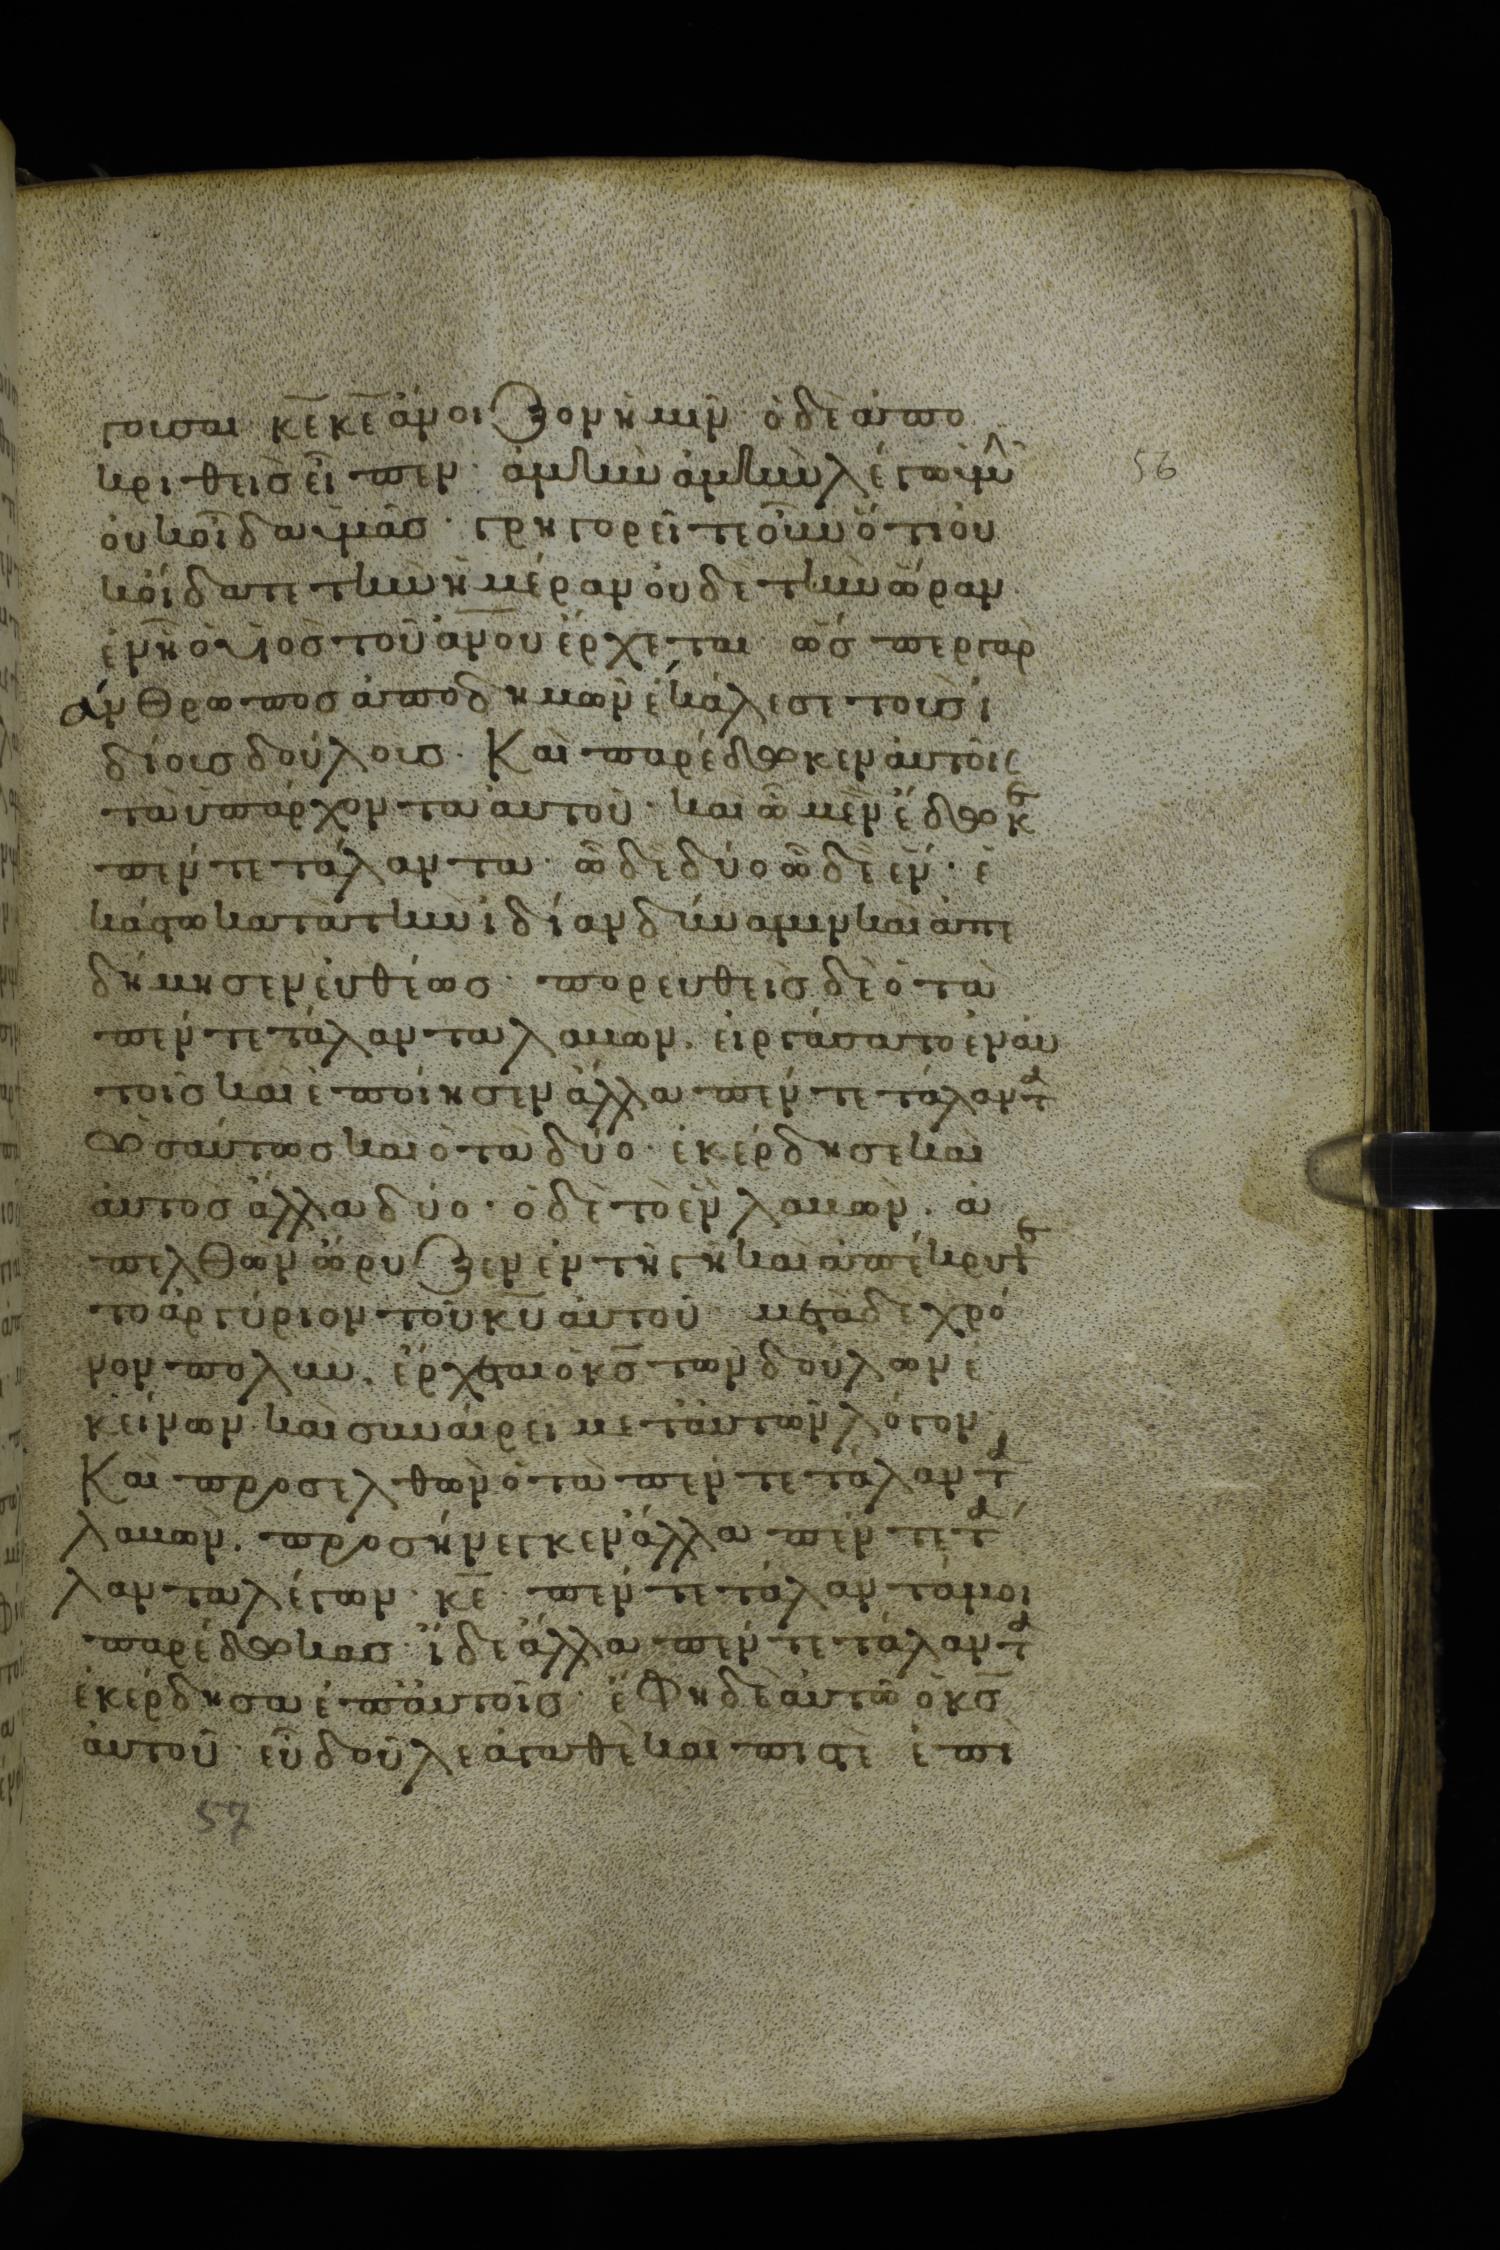 γουσαι κ̅ε̅ κ̅ε̅ ἄνοιξον ἡμῖν· ὁ δὲ ἀπο
κριθεὶς εἶπεν· ἀμὴν ἀμὴν λέγω ὑμῖν
οὐκ οἶδα ὑμᾶς· γρηγορεῖτε οὖν ὅτι οὐ
κ οἴδατε τὴν ἡμέραν οὐδὲ τὴν ὥραν
ἐν ἧ ὁ υἱὸς τοῦ α̅ν̅ο̅υ̅ ἔρχεται· ὥσπερ γὰρ
ἄνθρωπος ἀποδημῶν ἐκάλεσε τοὺς ἰ
δίους δούλους· Καὶ παρέδωκεν αὐτοῖς
τὰ ὑπάρχοντα αὐτοῦ· καὶ ὧ μὲν ἔδωκε
πέντε τάλαντα· ὧ δὲ δύο ὧ δὲ ἕν· ἑ
κάστω κατὰ τὴν ἰδίαν δύναμιν καὶ ἀπε
δήμησεν εὐθέως· πορευθεὶς δὲ ὁ τὰ
πέντε τάλαντα λαβών· εἰργάσατο ἐν αὐ
τοῖς καὶ ἐποίησεν ἄλλα πέντε τάλαντα
Ὡσαύτως καὶ ὁ τὰ δύο· ἐκέρδησε καὶ
αὐτὸς ἄλλα δύο· ὁ δὲ τὸ ἓν λαβών· ἀ
πελθὼν ὤρυξεν ἐν τῆ γῆ καὶ ἀπέκρυψε
τὸ ἀργύριον τοῦ κ̅υ̅ αὐτοῦ μετὰ δὲ χρό
νον πολὺν· ἔρχεται ὁ κ̅ς̅ τῶν δούλων ἐ
κείνων· καὶ συναίρει μετ' αὐτῶν λόγον·
Καὶ προσελθὼν ὁ τὰ πέντε τάλαντα
λαβών· προσήνεγκεν ἄλλα πέντε τά
λαντα λέγων· κ̅ε̅· πέντε τάλαντά μοι
παρέδωκας· ἴδε ἄλλα πέντε τάλαντα
ἐκέρδησα ἐπ' αὐτοῖς· ἔφη δὲ αὐτῶ ὁ κ̅ς̅
αὐτοῦ· εὖ δοῦλε ἀγαθὲ καὶ πιστὲ ἐπὶ
56
57